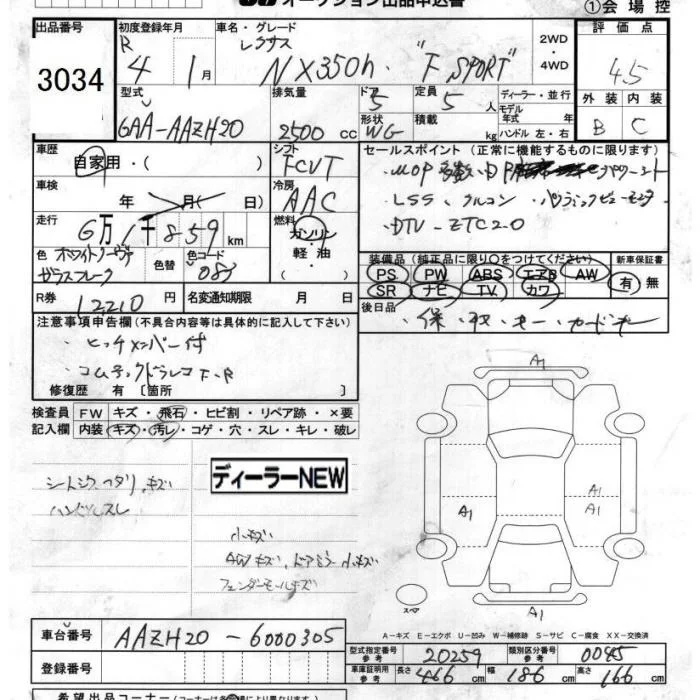 オークション出品申込書
①会場控
出品番号
3034
初度登録年月
R 4 年 1月
車名・グレード
レクサス
NX350h. "F SPORT"
2WD
・
4WD
評価点
4.5
外装 内装
B C
型式
6AA-AAZH20
排気量
2500 cc
ドア
5
形状
WG
定員
5 人
積載
kg
ディーラー・並行
モデル
年式 年
ハンドル 左・右
車歴
自家用・( )
シフト
FCVT
車検
年 月( 日)
冷房
AAC
走行
6万1千859km
燃料
ガソリン
・軽油
・( )
色 ホワイトノーヴァ
ガラスフレーク
色替
色コード
083
R券 12210 円
名変通知期限 月 日
セールスポイント (正常に機能するものに限ります)
・LSS・クルコン ・パノラミックビューモニタ
・DTV ・ETC2.0
装備品 (純正品に限り○をつけてください)
PS PW ABS エアB AW
SR ナビ TV カワ
新車保証書
有・無
後日品
・保・取・キー・カードキー
注意事項申告欄 (不具合内容等は具体的に記入して下さい)
・ヒッチメンバー付
・コムテックドラレコF・R
修復歴 有 [箇所 ]
検査員
記入欄
FW キズ・飛石・ヒビ割・リペア跡・×要
内装 キズ・汚レ・コゲ・穴・スレ・キレ・破レ
シートシワ、ヘタリ、キズ
ハンドルスレ
ディーラーNEW
小キズ
AWキズ、ドアミラー小キズ
フェンダーモールキズ
A1
A1
A1
A1
A1
スペア
A1
A-キズ E-エクボ U-凹み W-補修跡 S-サビ C-腐食 XX-交換済
車台番号
AAZH20-6000305
登録番号
型式指定番号
参考
20259
類別区分番号
参考
0045
車庫証明用
参考
長さ 466 cm 幅 186 cm 高さ 166 cm
希望出品コーナー